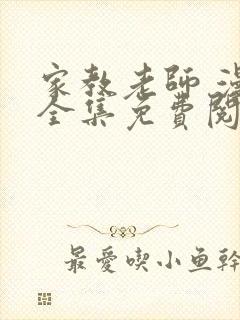 家教老師
全集免費閱
最愛喫小鱼幹